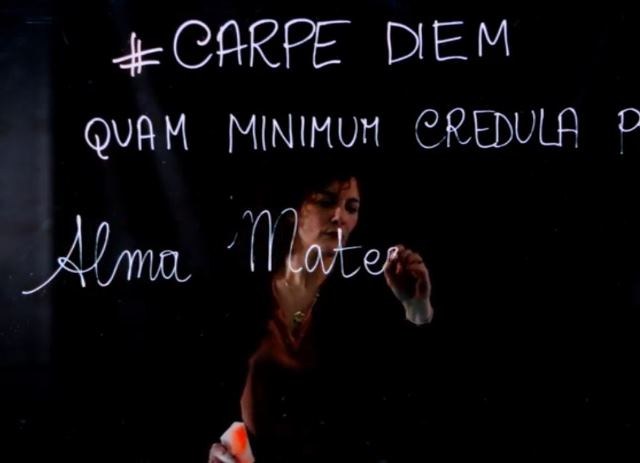 #CARPE DIEM
QUAM MINIMUM CREDULA P
Alma Mate